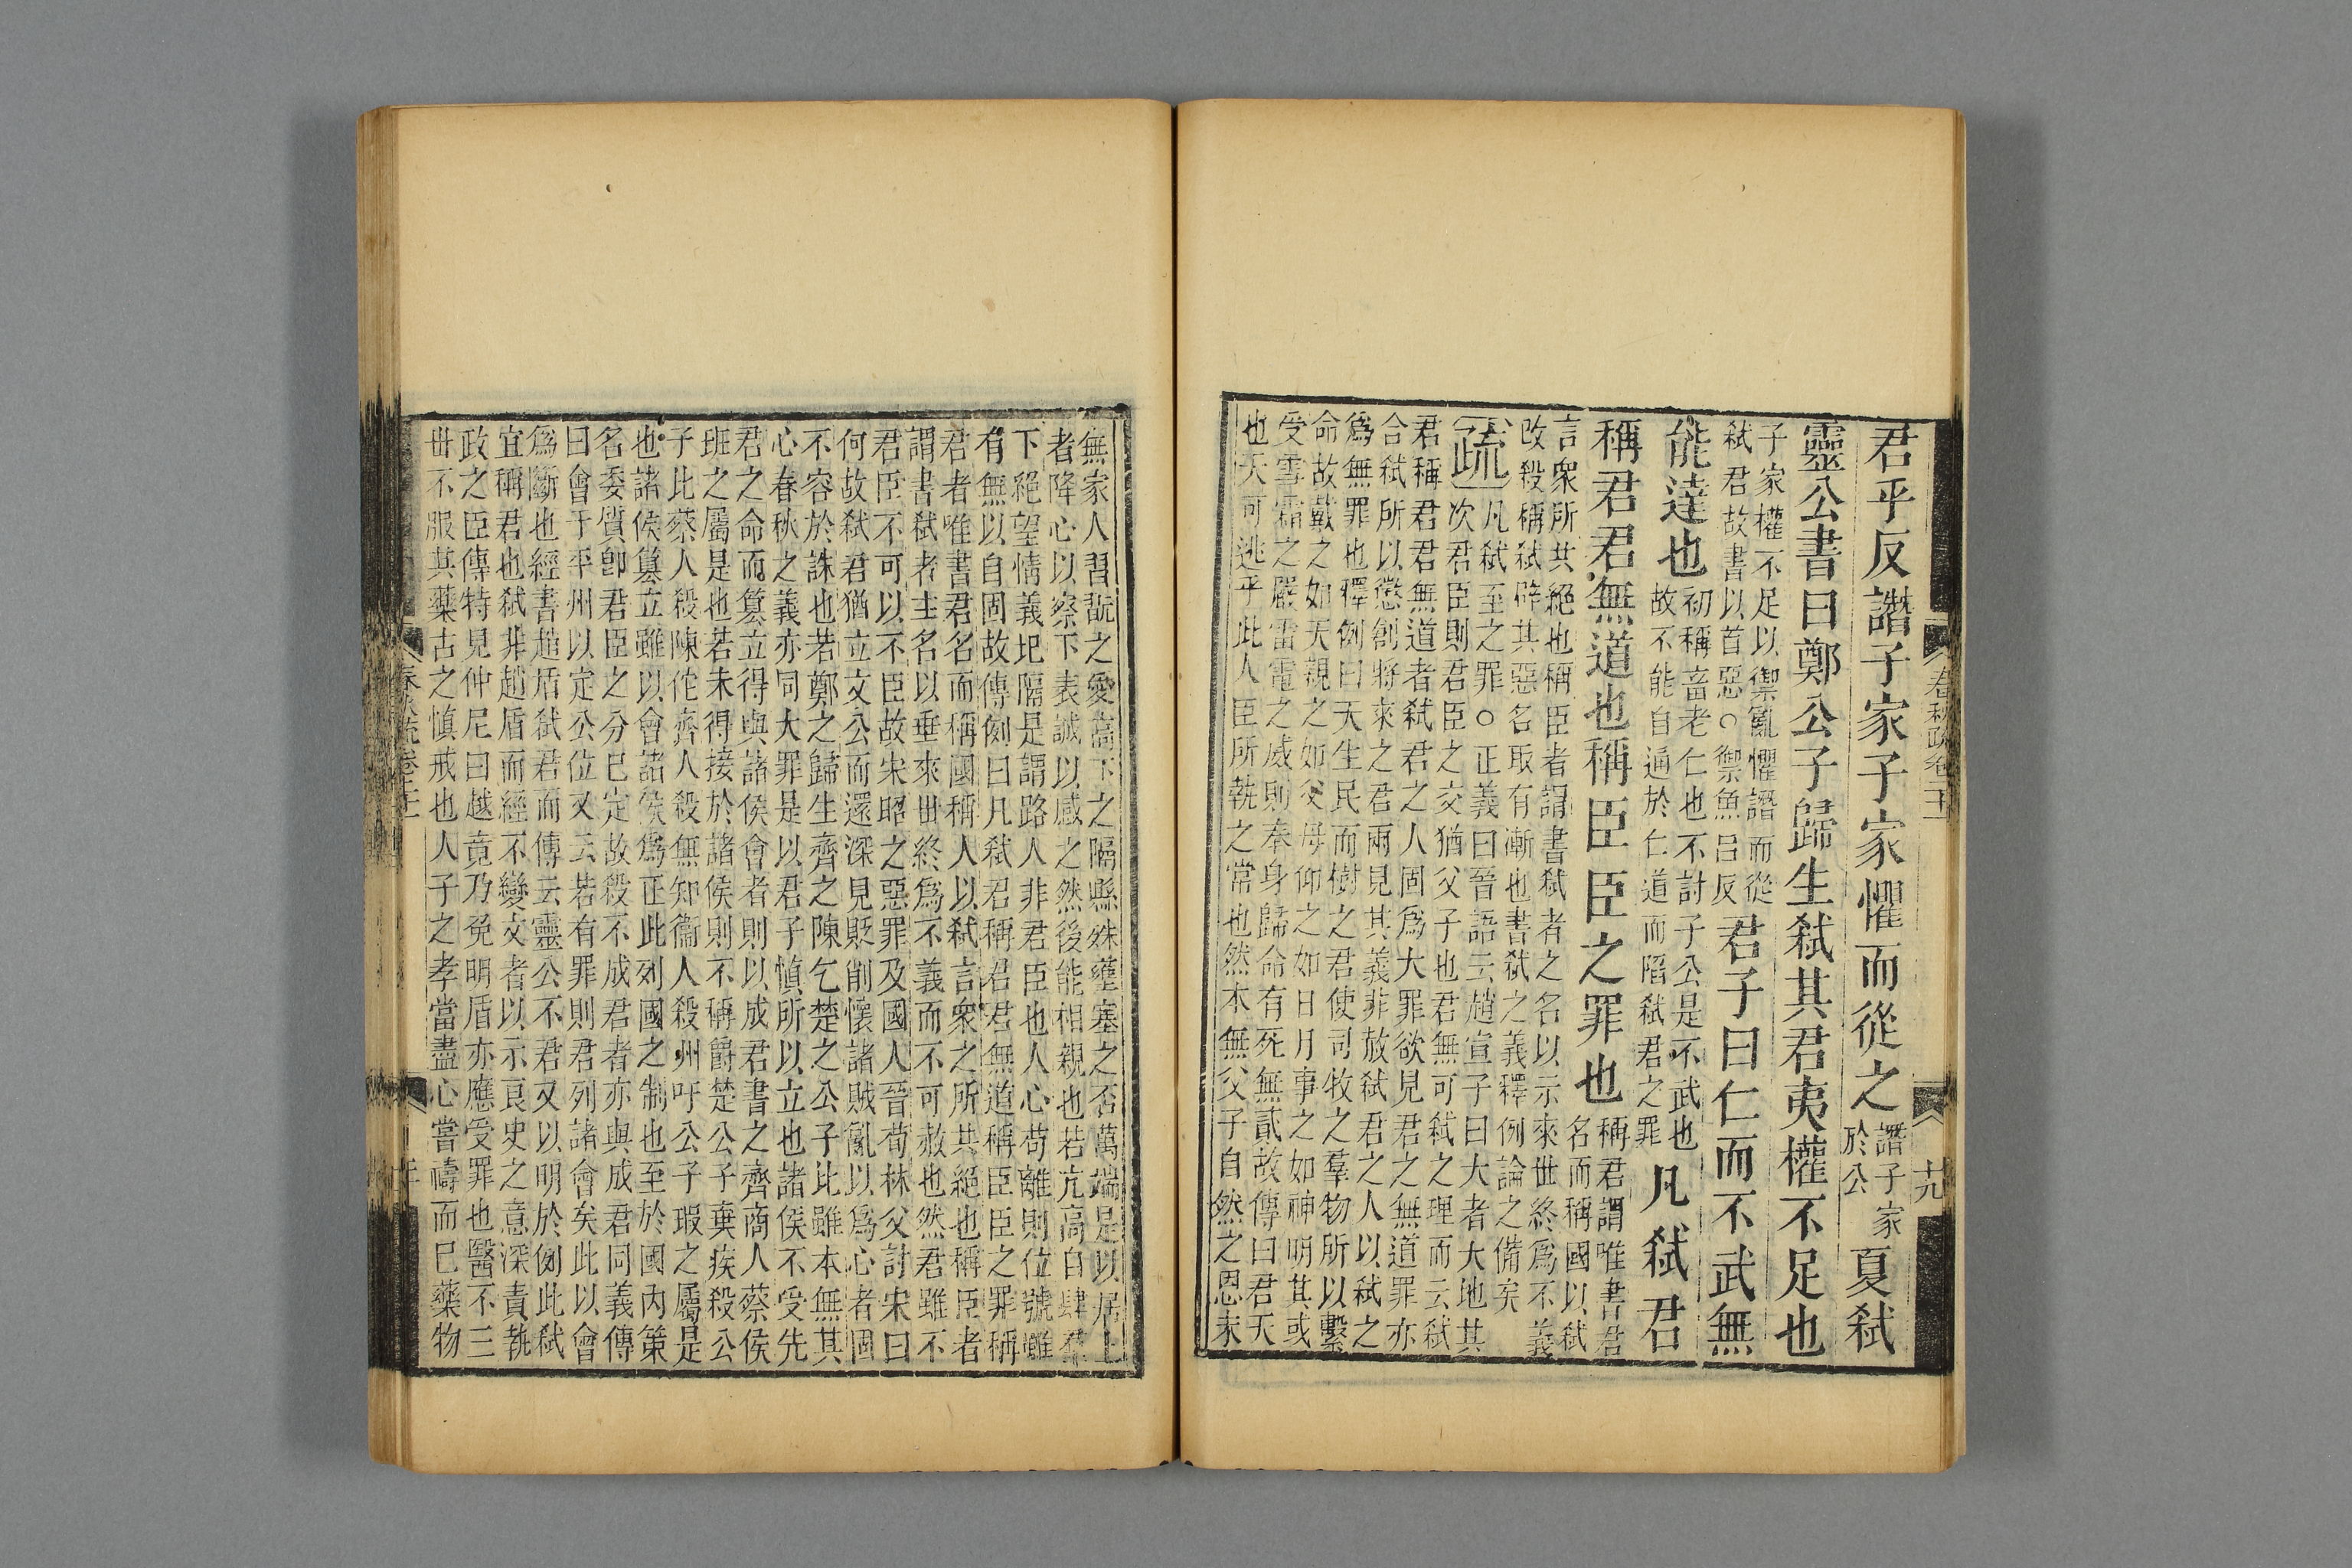 君乎反譖子家子家懼而從之譖子家
於公夏弒
靈公書曰鄭公子歸生弒其君夷權不足也
子家權不足以禦亂懼譖而從
弒君故書以首惡○禦魚呂反君子曰仁而不武無
能達也初稱畜老仁也不討子公是不武也
故不能自通於仁道而陷弒君之罪凡弒君
稱君君無道也稱臣臣之罪也稱君謂唯書君
名而稱國以弒
言衆所共絕也稱臣者謂書弒者之名以示來世終爲不義
改殺稱弒辟其惡名取有漸也書弒之義釋例論之備矣
疏凡弒至之罪○正義曰晉語云趙宣子曰大者大地其
次君臣則君臣之交猶父子也君無可弒之理而云弒
君稱君君無道者弒君之人固爲大罪欲見君之無道罪亦
合弒所以懲創將來之君兩見其義非赦弒君之人以弒之
爲無罪也釋例曰天生民而樹之君使司牧之羣物所以繫
命故戴之如天親之如父母仰之如日月事之如神明其或
受雪霜之嚴雷電之威則奉身歸命有死無貳故傳曰君天
也天可逃乎此人臣所執之常也然本無父子自然之恩末
無家人習翫之愛高下之隔縣殊壅塞之否萬端是以居上
者降心以察下表誠以感之然後能相親也若亢高自肆羣
下絕望情義圯隔是謂路人非君臣也人心苟離則位號雖
有無以自固故傳例曰凡弒君稱君君無道稱臣臣之罪稱
君者唯書君名而稱國稱人以弒言衆之所共絕也稱臣者
謂書弒者主名以垂來世終爲不義而不可赦也然君雖不
君臣不可以不臣故宋昭之惡罪及國人晉荀林父討宋曰
何故弒君猶立文公而還深見貶削懷諸賊亂以爲心者固
不容於誅也若鄭之歸生齊之陳乞楚之公子比雖本無其
心春秋之義亦同大罪是以君子慎所以立也諸侯不受先
君之命而篡立得與諸侯會者則以成君書之齊商人蔡侯
班之屬是也若未得接於諸侯則不稱爵楚公子棄疾殺公
子比蔡人殺陳佗齊人殺無知衞人殺州吁公子瑕之屬是
也諸侯篡立雖以會諸侯爲正此列國之制也至於國內策
名委質卽君臣之分已定故殺不成君者亦與成君同義傳
曰會于平州以定公位又云若有罪則君列諸會矣此以會
爲斷也經書趙盾弒君而傳云靈公不君又以明於例此弒
宜稱君也弒非趙盾而經不變文者以示良史之意深責執
政之臣傳特見仲尼曰越竟乃免明盾亦應受罪也醫不三
世不服其藥古之慎戒也人子之孝當盡心嘗禱而已藥物